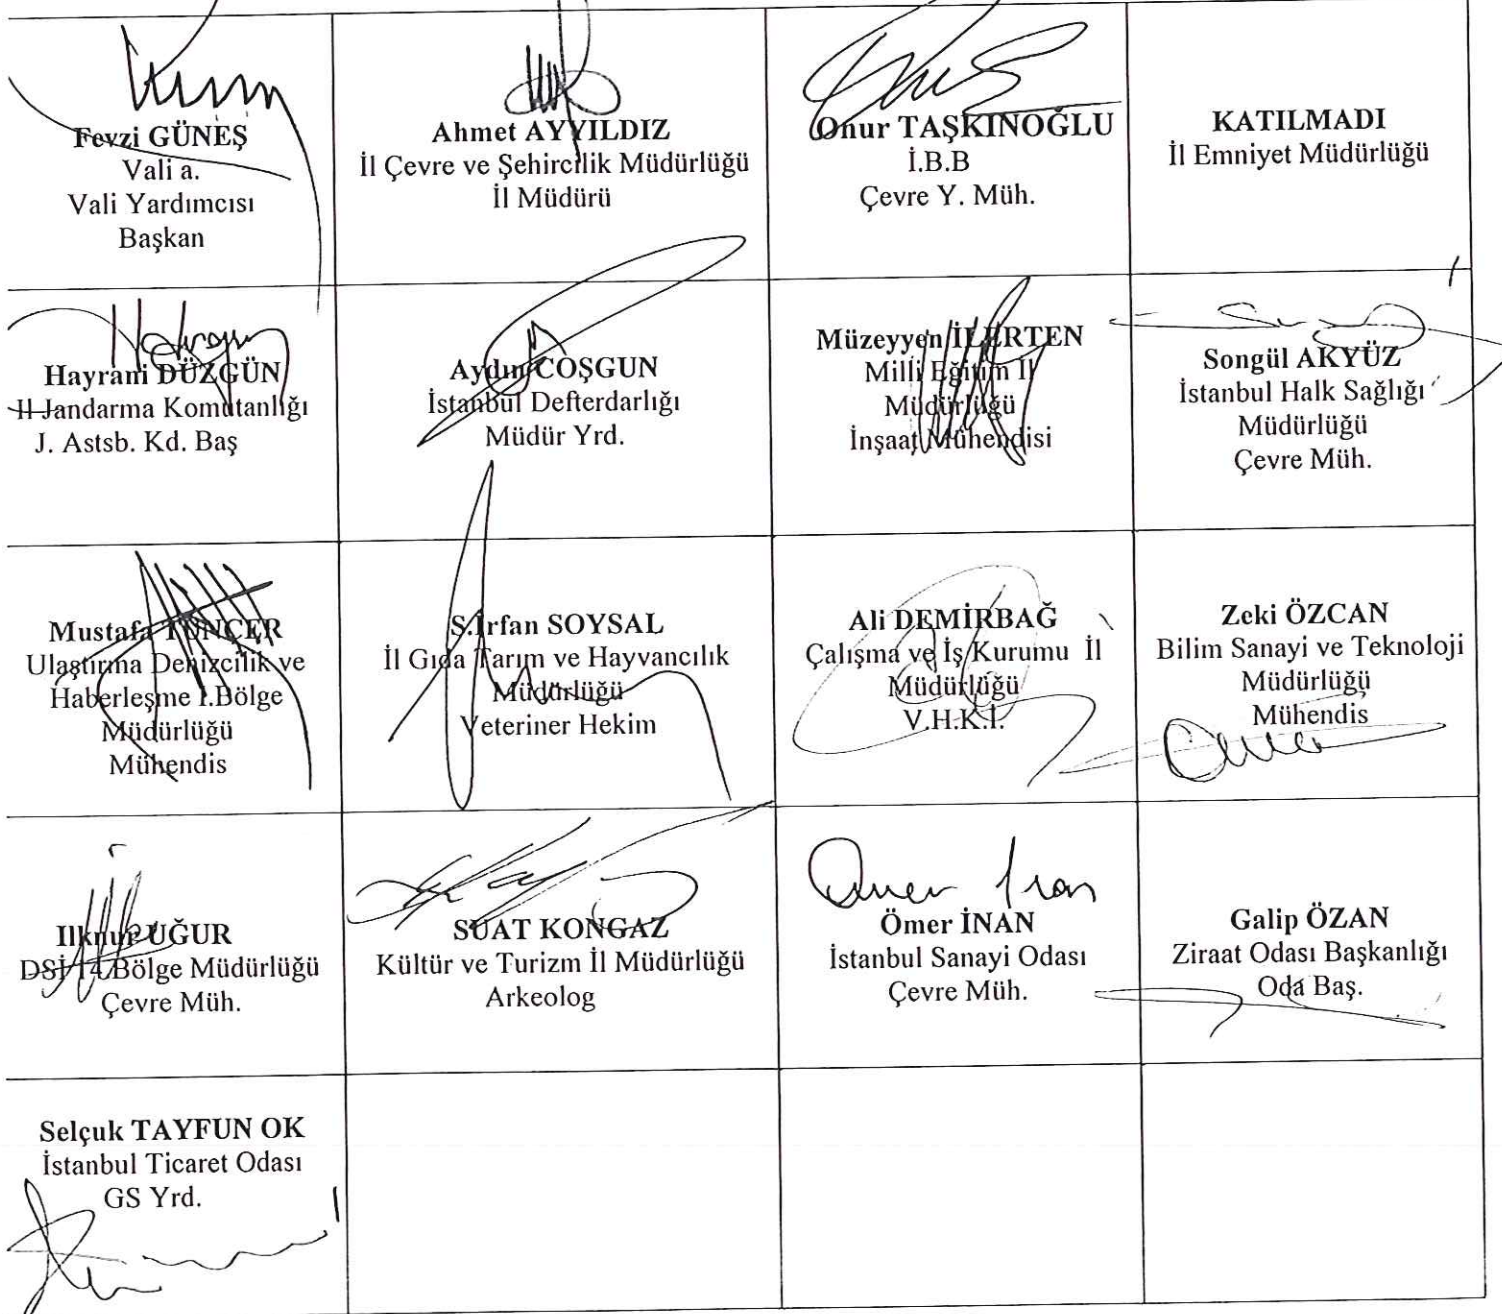 Fevzi GÜNEŞ
Vali a.
Vali Yardımcısı
Başkan
Ahmet AYYILDIZ
İl Çevre ve Şehircilik Müdürlüğü
İl Müdürü
Onur TAŞKINOĞLU
İ.B.B
Çevre Y. Müh.
KATILMADI
İl Emniyet Müdürlüğü
Hayrani DÜZGÜN
İl Jandarma Komutanlığı
J. Astsb. Kd. Baş
Aydın COŞGUN
İstanbul Defterdarlığı
Müdür Yrd.
Müzeyyen İLERTEN
Milli Eğitim İl
Müdürlüğü
İnşaat Mühendisi
Songül AKYÜZ
İstanbul Halk Sağlığı
Müdürlüğü
Çevre Müh.
Mustafa TUNÇER
Ulaştırma Denizcilik ve
Haberleşme I.Bölge
Müdürlüğü
Mühendis
S.İrfan SOYSAL
İl Gıda Tarım ve Hayvancılık
Müdürlüğü
Veteriner Hekim
Ali DEMİRBAĞ
Çalışma ve İş Kurumu İl
Müdürlüğü
V.H.K.İ.
Zeki ÖZCAN
Bilim Sanayi ve Teknoloji
Müdürlüğü
Mühendis
Ilknur UĞUR
DSİ 14.Bölge Müdürlüğü
Çevre Müh.
SUAT KONGAZ
Kültür ve Turizm İl Müdürlüğü
Arkeolog
Ömer İnan
Ömer İNAN
İstanbul Sanayi Odası
Çevre Müh.
Galip ÖZAN
Ziraat Odası Başkanlığı
Oda Baş.
Selçuk TAYFUN OK
İstanbul Ticaret Odası
GS Yrd.